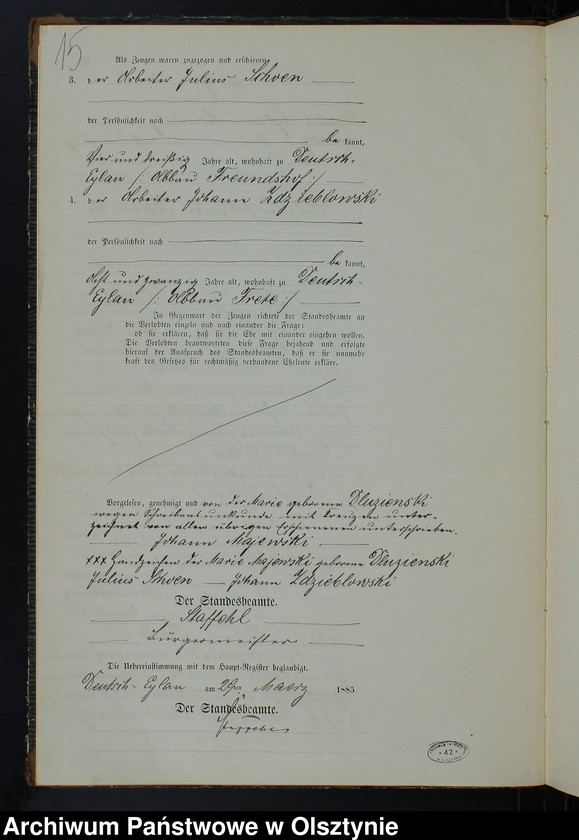 15
Als Zeugen waren zugezogen und erschienen:
3. der Arbeiter Julius Schoen
der Persönlichkeit nach
be kannt,
Vier und dreißig Jahre alt, wohnhaft zu Deutsch-
Eylau /: Abbau Freundshof :/
4. der Arbeiter Johann Zdzieblowski
der Persönlichkeit nach
be kannt,
Acht und zwanzig Jahre alt, wohnhaft zu Deutsch-
Eylau /: Abbau :/
In Gegenwart der Zeugen richtete der Standesbeamte an
die Verlobten einzeln und nach einander die Frage:
ob sie erklären, daß sie die Ehe mit einander eingehen wollen.
Die Verlobten beantworteten diese Frage bejahend und erfolgte
hierauf der Ausspruch des Standesbeamten, daß er sie nunmehr
kraft des Gesetzes für rechtmäßig verbundene Eheleute erkläre.
Vorgelesen, genehmigt und von der Marie geborene Dluzienski
wegen Schreibensunkunde mit Kreuzen unter-
zeichnet von allen übrigen Erschienenen unterschrieben.
Johann Majewski
XXX Handzeichen der Marie Majewski geborene Dluzienski
Julius Schoen — Johann Zdzieblowski
Der Standesbeamte.
Staffehl
Bürgermeister
Die Uebereinstimmung mit dem Haupt-Register beglaubigt.
Deutsch-Eylau am 29ten Maerz 1885.
Der Standesbeamte.
* 42 *
Archiwum Państwowe w Olsztynie